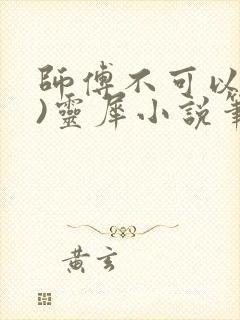 師傅不可以
)靈犀小說
黃玄